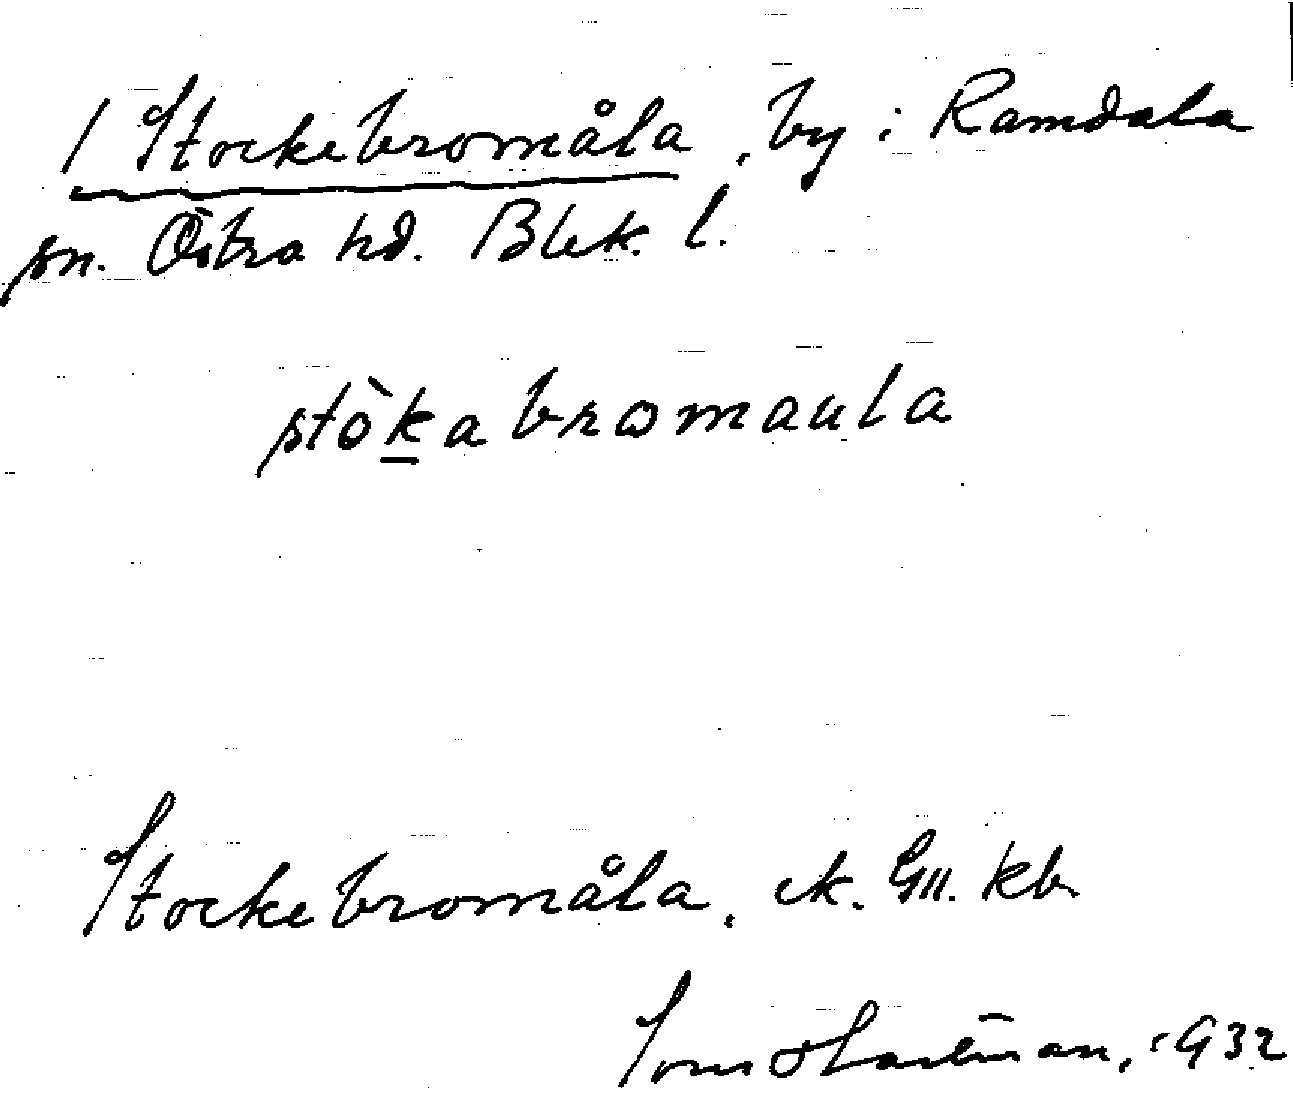 1 Stockebromåla, by i Ramdala
sn. Östra hd. Blek. l.
stòkabromaula
Stockebromåla, ek. GII. kb.
1932